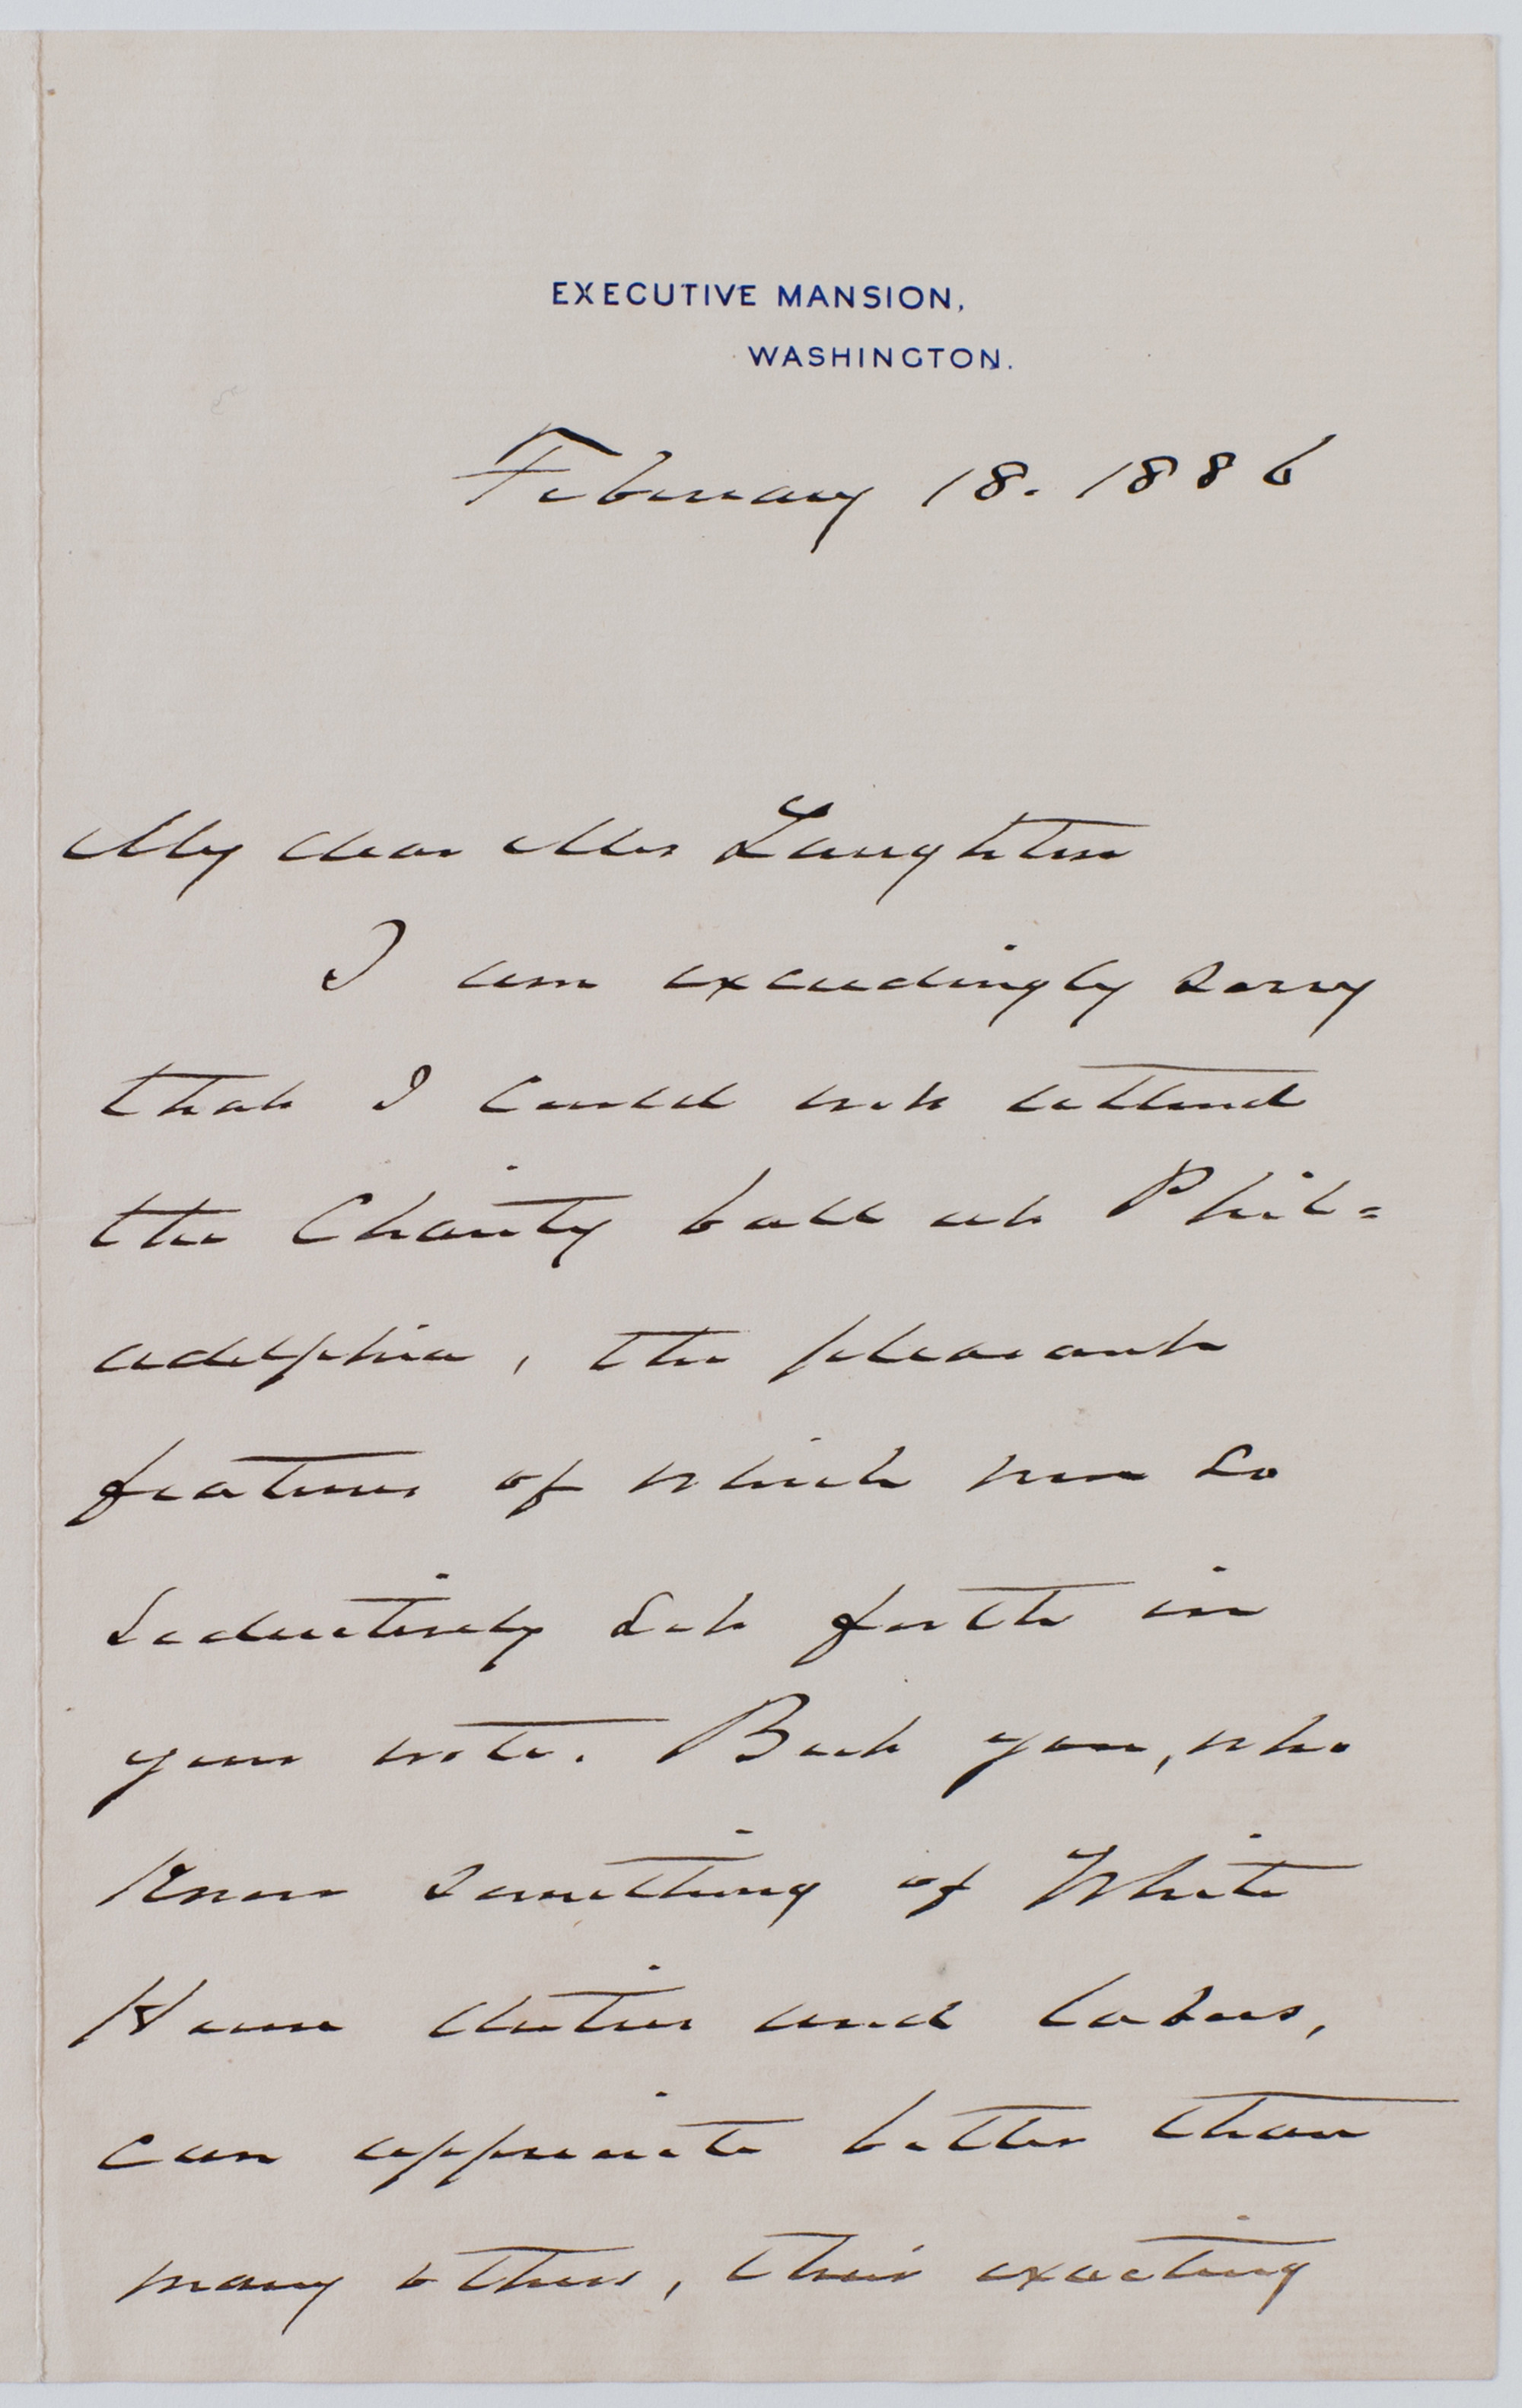 EXECUTIVE MANSION,
WASHINGTON.
February 18. 1886
My dear Mrs Laughton
I am exceedingly sorry
that I could not attend
the Charity ball at Phil=
adelphia, the pleasant
features of which were so
seductively set forth in
your note. But you, who
know something of White
House duties and labors,
can appreciate better than
many others, their exacting